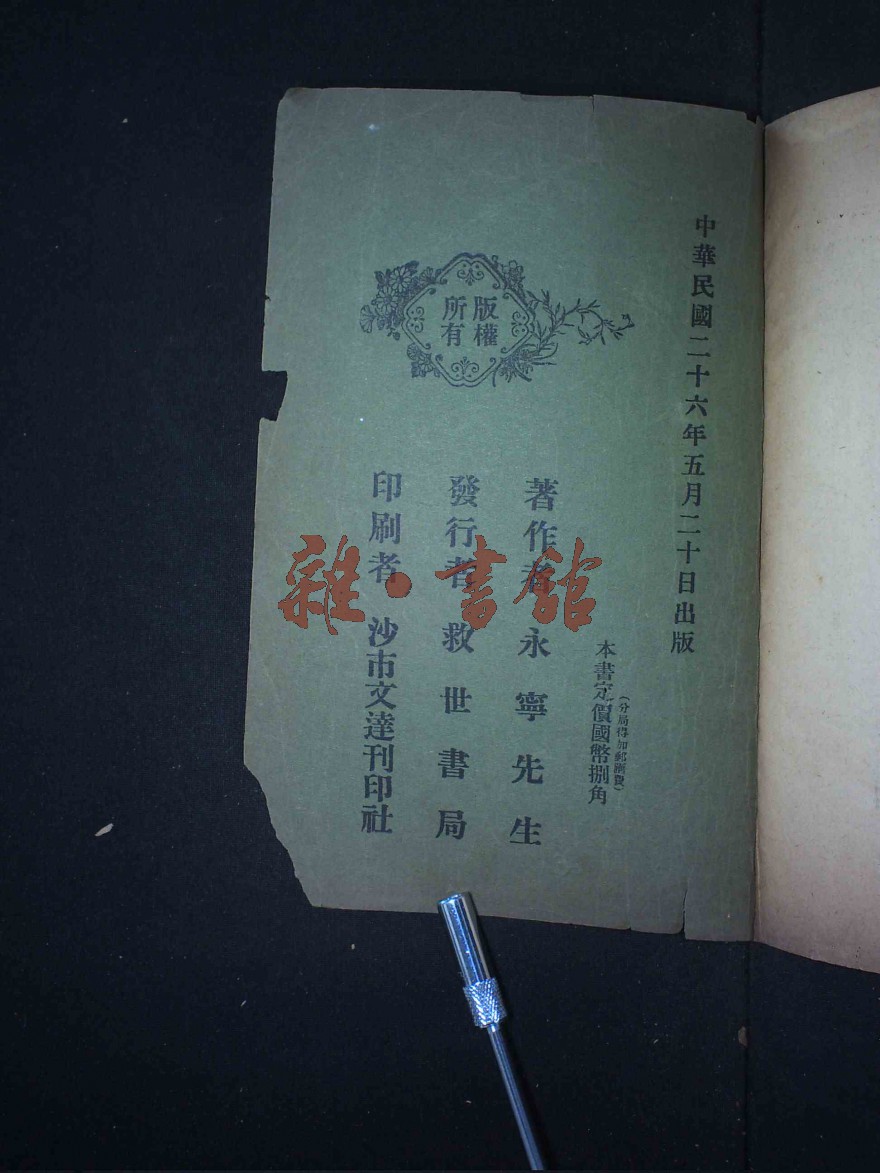 中華民國二十六年五月二十日出版
(分局得加郵匯費)
本書定價國幣捌角
版權
所有
著作者 永寧先生
發行者 救世書局
印刷者 沙市文達刊印社
雜·書館